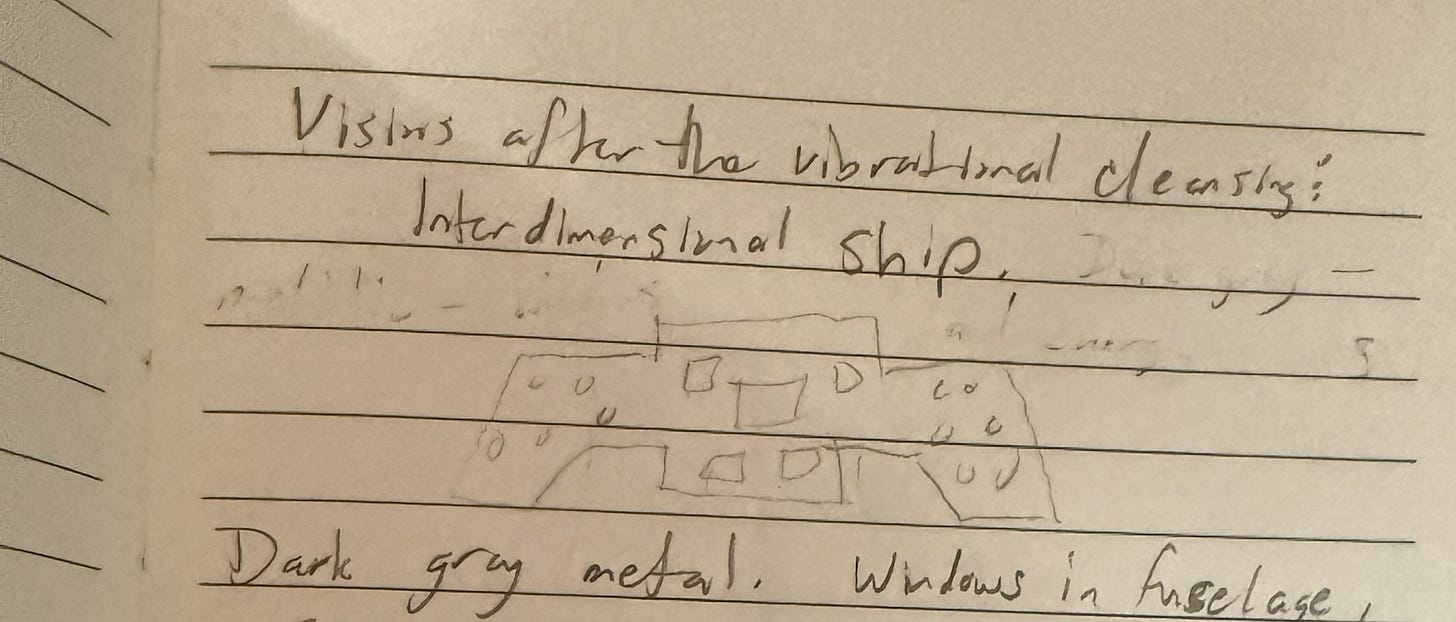 Visions after the vibrational cleansing:
Interdimensional ship.
Dark gray metal. Windows in fuselage,